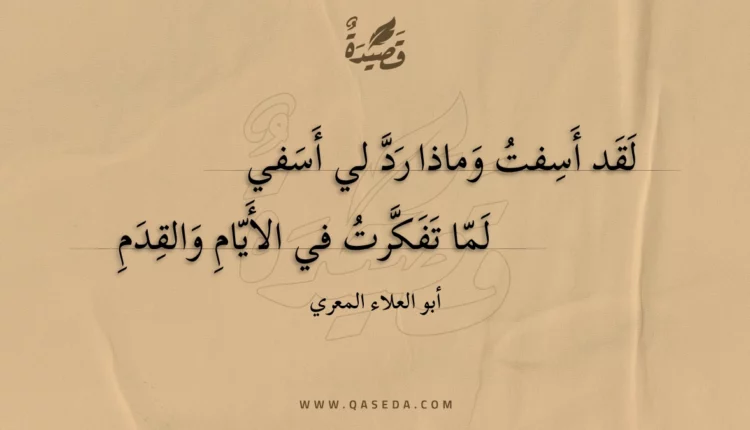 قَصِيدَةٌ
لَقَد أَسِفتُ وَماذا رَدَّ لي أَسَفي
لَمّا تَفَكَّرتُ في الأَيّامِ وَالقِدَمِ
أبو العلاء المعري
WWW.QASEDA.COM